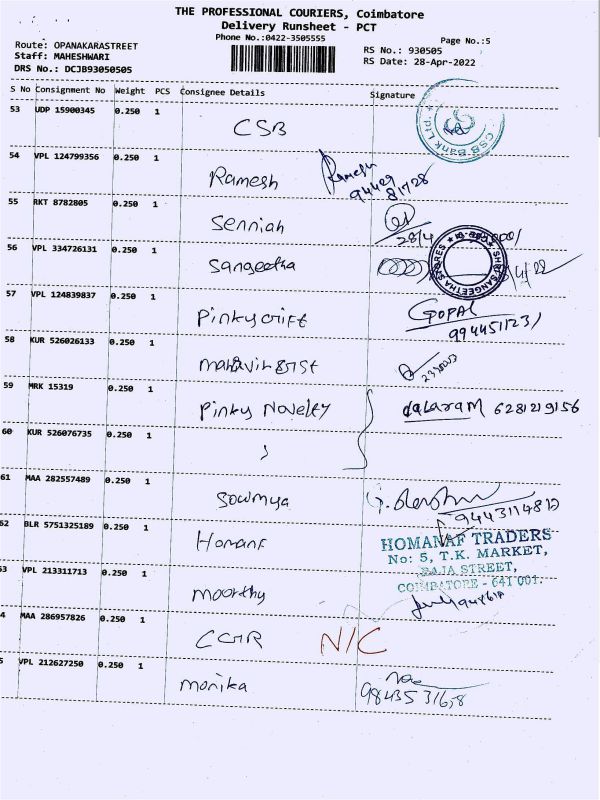 THE PROFESSIONAL COURIERS, Coimbatore
Delivery Runsheet - PCT
Phone No.:0422-3505555
Page No.:5
Route: OPANAKARASTREET
Staff: MAHESHWARI
DRS No.: DCJB93050505
RS No.: 930505
RS Date: 28-Apr-2022
S No Consignment No Weight PCS Consignee Details Signature
53 UDP 15900345 0.250 1 CSB
CSB Bank Ltd.
54 VPL 124799356 0.250 1 Ramesh Ramesh
94429
81728
55 RKT 8782805 0.250 1 Senniah
28/4
56 VPL 334726131 0.250 1 Sangeetha
SHRI SANGEETHA STORES
57 VPL 124839837 0.250 1 Pinky Gift GOPAL
9944511231
58 KUR 526026133 0.250 1
59 MRK 15319 0.250 1 Pinky Novelty dalaram 6281219156
60 KUR 526076735 0.250 1
61 MAA 282557489 0.250 1 Sowmya
62 BLR 5751325189 0.250 1
HOMANAF TRADERS
No: 5, T.K. MARKET,
RAJA STREET,
COIMBATORE - 641 001.
53 VPL 213311713 0.250 1 Moorthy
4 MAA 286957826 0.250 1 CGR N/C
5 VPL 212627250 0.250 1 Monika